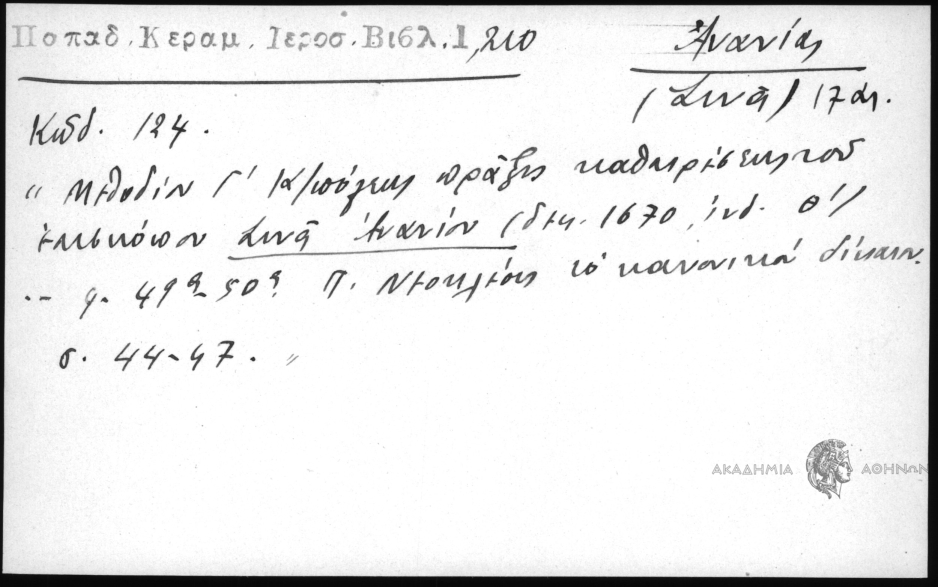 Παπαδ. Κεραμ. Ιεροσ. Βιβλ. 1, 210
Ἀνανίας
(Σινᾶ) 17 αι.
Κωδ. 124.
" Μεθοδίου Γ' Κ/πόλεως πρᾶξις καθαιρέσεως τοῦ
ἐπισκόπου Σινᾶ Ἀνανίου (δεκ. 1670, ἰνδ. θ')
.. φ. 49α-50α. Π. Νεοκλέους τὸ κανονικὸν δίκαιον.
σ. 44-47. "
ΑΚΑΔΗΜΙΑ ΑΘΗΝΩΝ